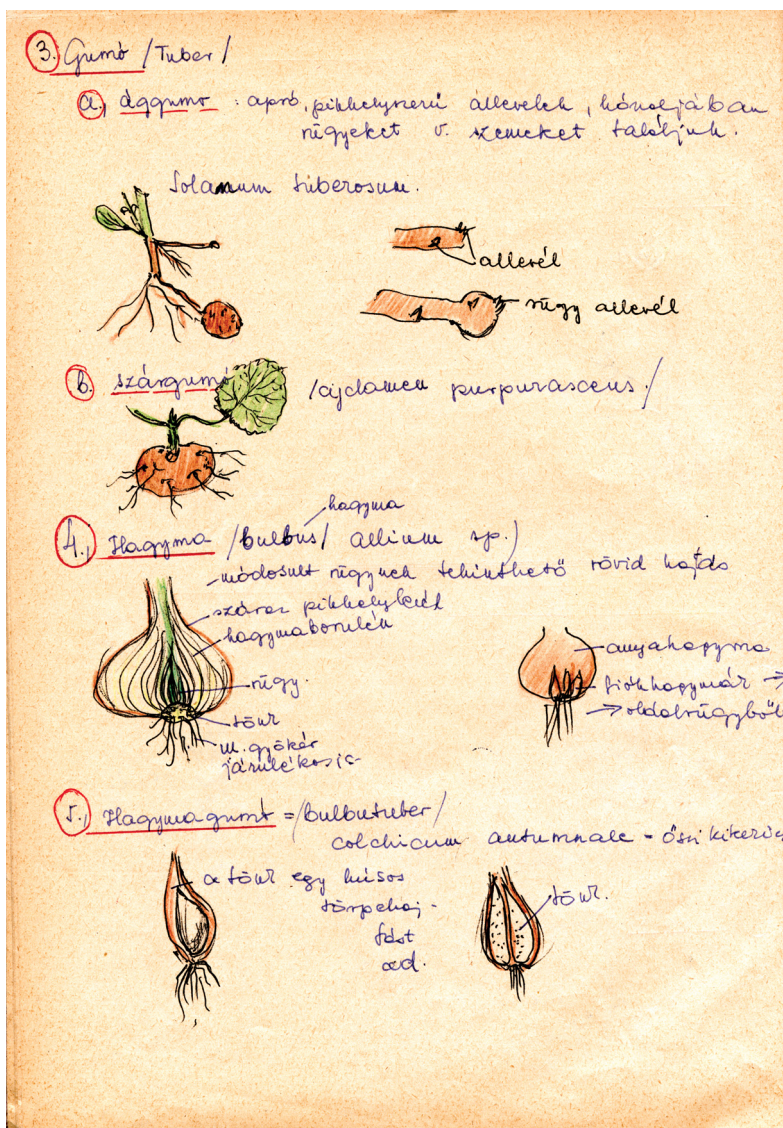 3. Gumó /Tuber/
a, ággumó : apró, pikkelyszerű állevelek, hónaljában
rügyeket v. szemeket találjuk.
Solanum tuberosum.
allevél
rügy allevél
b. szárgumó /cyclamen purpurascens/
hagyma
4., Hagyma /bulbus/ allium sp.)
módosult rügynek tekinthető rövid hajtás
száraz pikkelylevél
hagymaborulék
rügy.
tönk
m. gyökér
járulékosic-
anyahagyma
fiókhagymár →
→ oldalrügyből
5., Hagymagumó = /bulbutuber/
colchicum autumnale - őszi kikerics
a tönk egy húsos
törpehaj-
tást
ad.
tönk.